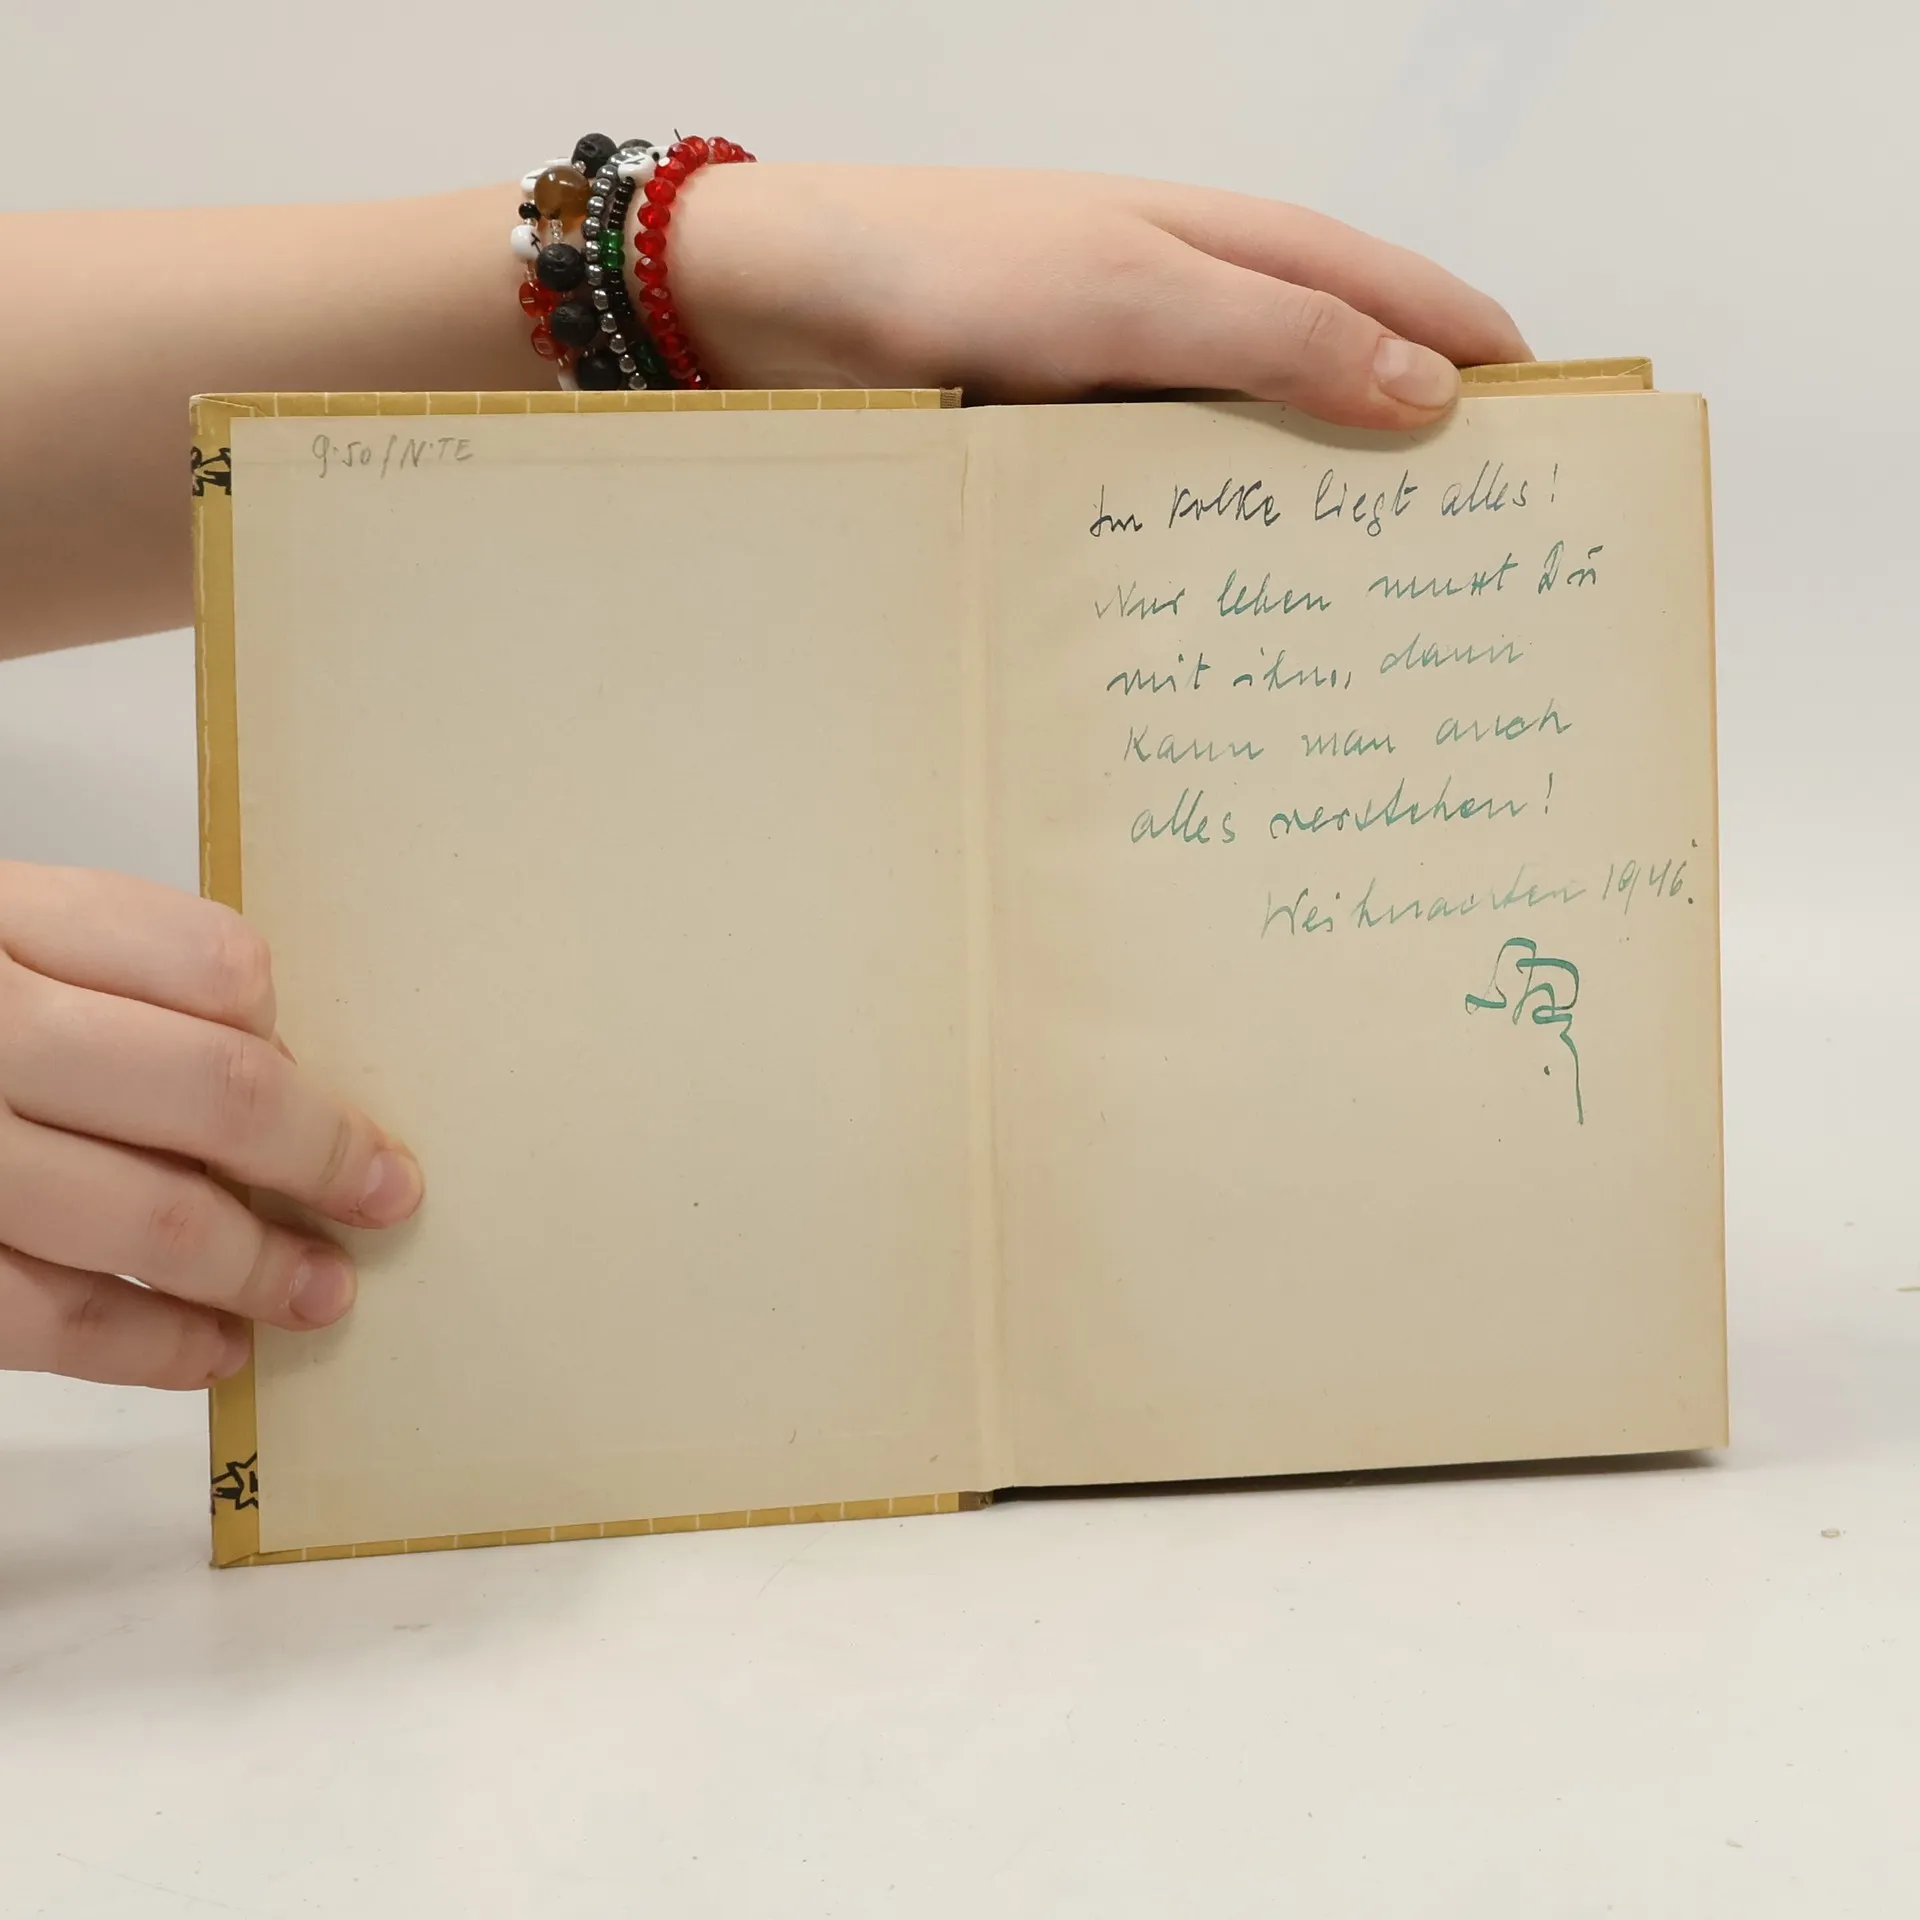 9.50/N.TE
Im Volke liegt alles!
Nur leben musst Dū
mit ihm, dann
kann man auch
alles verstehen!
Weihnachten 1946.